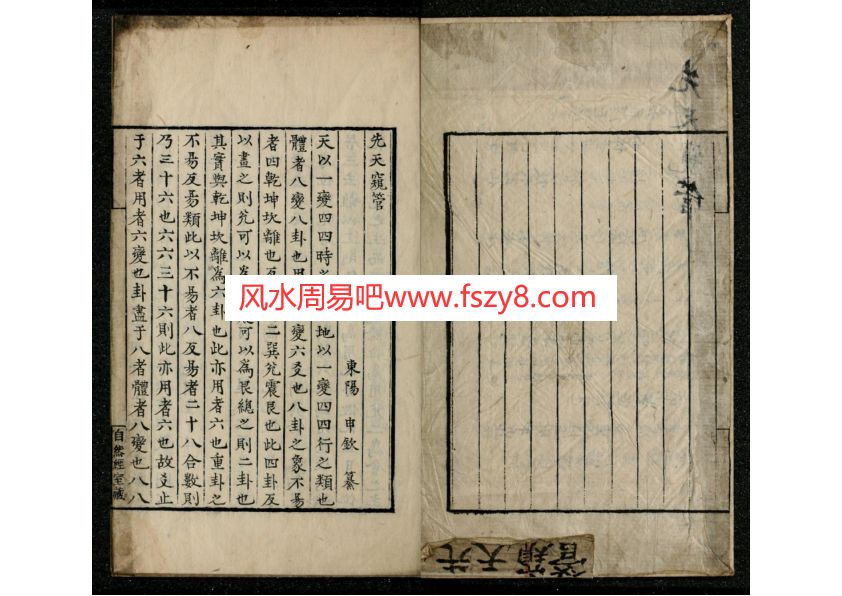 先天窺管
先天窺管
東陽 申欽 纂
天以一變四四時 地以一變四四行之類也
體者八變八卦也用 變六爻也八卦之象不易
者四乾坤坎離也反 二巽兌震艮也此四卦反
以盡之則兌可以 可以爲艮總之則二卦也
其實與乾坤坎離爲六卦也此亦用者六也重卦之
不易反易類此以不易者八反易者二十八合數則
乃三十六也六六三十六則此亦用者六也故爻止
于六者用者六變也卦盡于八者體者八變也八八
自然經室藏
风水周易吧www.fszy8.com